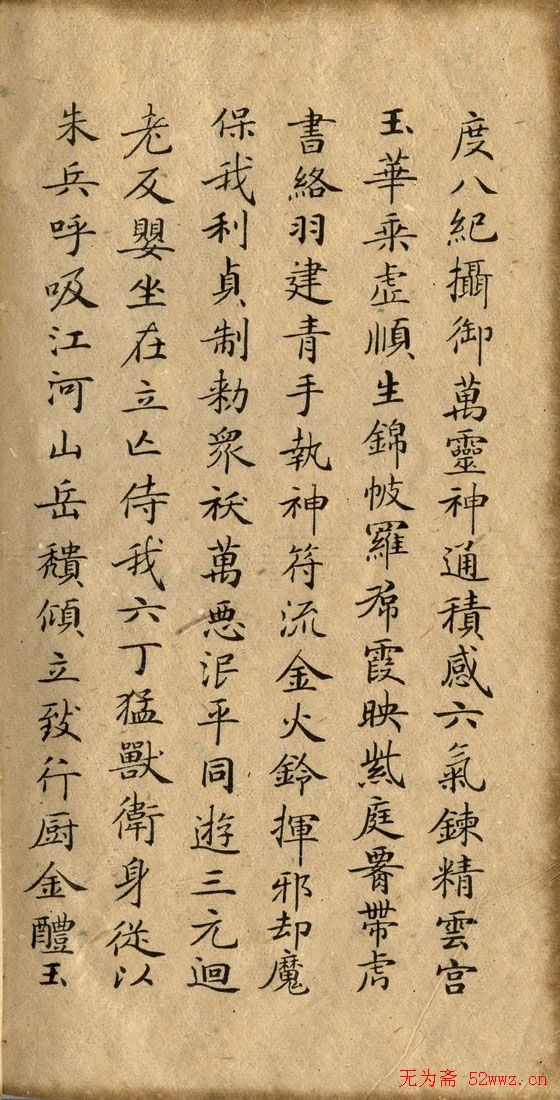 度八紀攝御萬靈神通積感六氣鍊精雲宮
玉華乘虛順生錦帔羅帬霞映紫庭腎帶虎
書絡羽建青手執神符流金火鈴揮邪却魔
保我利貞制勑眾祅萬惡泯平同遊三元迴
老反嬰坐在立亾侍我六丁猛獸衛身從以
朱兵呼吸江河山岳穨傾立致行厨金醴玉
无为斋 52wwz.cn